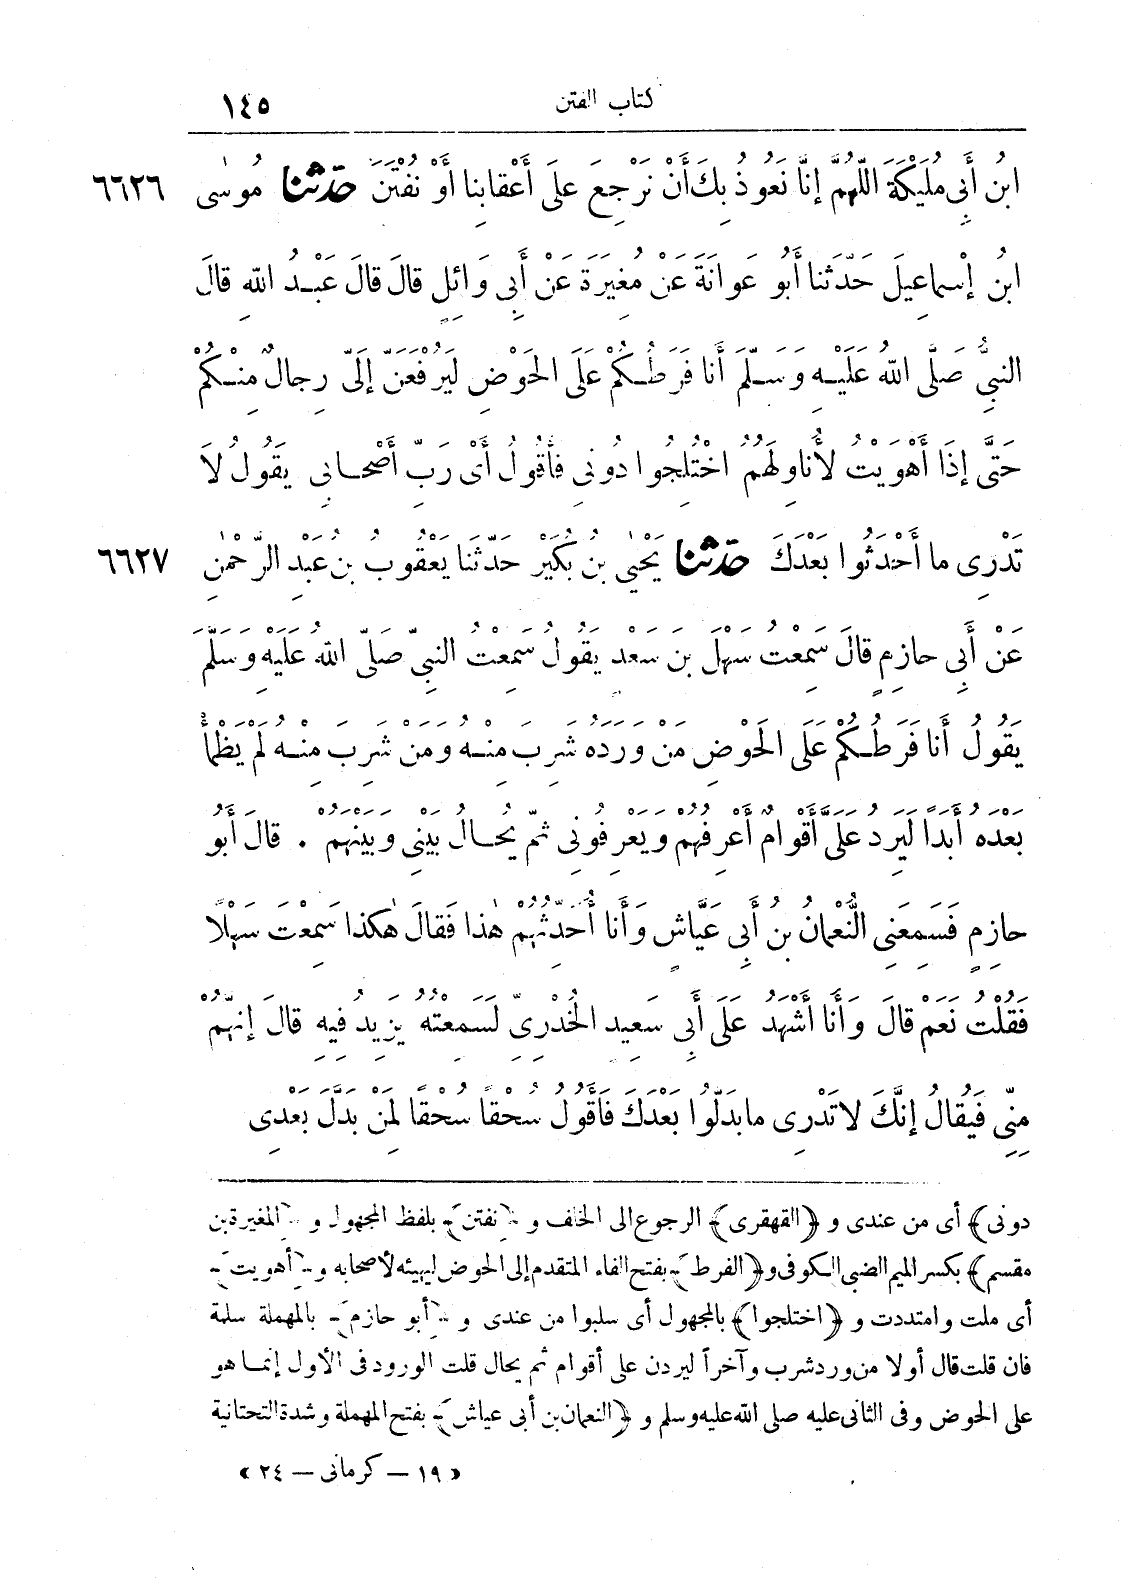 كتاب الفتن ١٤٥
ابنُ أَبِي مُلَيْكَةَ اللّٰهُمَّ إِنَّا نَعُوذُ بِكَ أَنْ نَرْجِعَ عَلَى أَعْقابِنا أَوْ نُفْتَنَ حدثنا مُوسٰى ٦٦٢٦
ابنُ إِسْماعِيلَ حَدَّثَنا أَبُو عَوانَةَ عَنْ مُغِيرَةَ عَنْ أَبِي وَائِلٍ قالَ قالَ عَبْدُ اللهِ قالَ
النبيُّ صَلَّى اللهُ عَلَيْهِ وَسَلَّمَ أَنا فَرَطُكُمْ عَلَى الحَوْضِ لَيُرْفَعَنَّ إِلَيَّ رِجالٌ مِنْكُمْ
حَتَّى إِذَا أَهْوَيْتُ لِأُناوِلَهُمُ اخْتُلِجُوا دُونِي فَأَقُولُ أَيْ رَبِّ أَصْحابِي يَقُولُ لا
تَدْرِي ما أَحْدَثُوا بَعْدَكَ حدثنا يَحْيٰى بنُ بُكَيْرٍ حَدَّثَنا يَعْقُوبُ بنُ عَبْدِ الرَّحْمٰنِ ٦٦٢٧
عَنْ أَبِي حازِمٍ قالَ سَمِعْتُ سَهْلَ بنَ سَعْدٍ يَقُولُ سَمِعْتُ النبيَّ صَلَّى اللهُ عَلَيْهِ وَسَلَّمَ
يَقُولُ أَنا فَرَطُكُمْ عَلَى الحَوْضِ مَنْ وَرَدَهُ شَرِبَ مِنْهُ ومَنْ شَرِبَ مِنْهُ لَمْ يَظْمَأْ
بَعْدَهُ أَبَداً لَيَرِدُ عَلَيَّ أَقْوامٌ أَعْرِفُهُمْ ويَعْرِفُونِي ثُمَّ يُحالُ بَيْنِي وبَيْنَهُمْ . قالَ أَبُو
حازِمٍ فَسَمِعَنِي النُّعْمانُ بنُ أَبِي عَيَّاشٍ وَأَنا أُحَدِّثُهُمْ هٰذا فَقالَ هٰكَذا سَمِعْتَ سَهْلًا
فَقُلْتُ نَعَمْ قالَ وَأَنا أَشْهَدُ عَلَى أَبِي سَعِيدٍ الخُدْرِيِّ لَسَمِعْتُهُ يَزِيدُ فِيهِ قالَ إِنَّهُمْ
مِنِّي فَيُقالُ إِنَّكَ لا تَدْرِي ما بَدَّلُوا بَعْدَكَ فَأَقُولُ سُحْقاً سُحْقاً لِمَنْ بَدَّلَ بَعْدِي
دونى) أى من عندى و (القهقرى) الرجوع الى الخلف و (نفتن) بلفظ المجهول و (المغيرة بن
مقسم) بكسر الميم الضبى الكوفى و (الفرط) بفتح الفاء المتقدم إلى الحوض ليهيئه لأصحابه و (أهويت)
أى ملت وامتددت و (اختلجوا) بالمجهول أى سلبوا من عندى و (أبو حازم) بالمهملة سلمة
فان قلت قال أولا من ورد شرب وآخراً ليردن على أقوام ثم يحال قلت الورود فى الأول إنما هو
على الحوض وفى الثانى عليه صلى الله عليه وسلم و (النعمان بن أبى عياش) بفتح المهملة وشدة التحتانية
« ١٩ – كرمانى – ٢٤ »